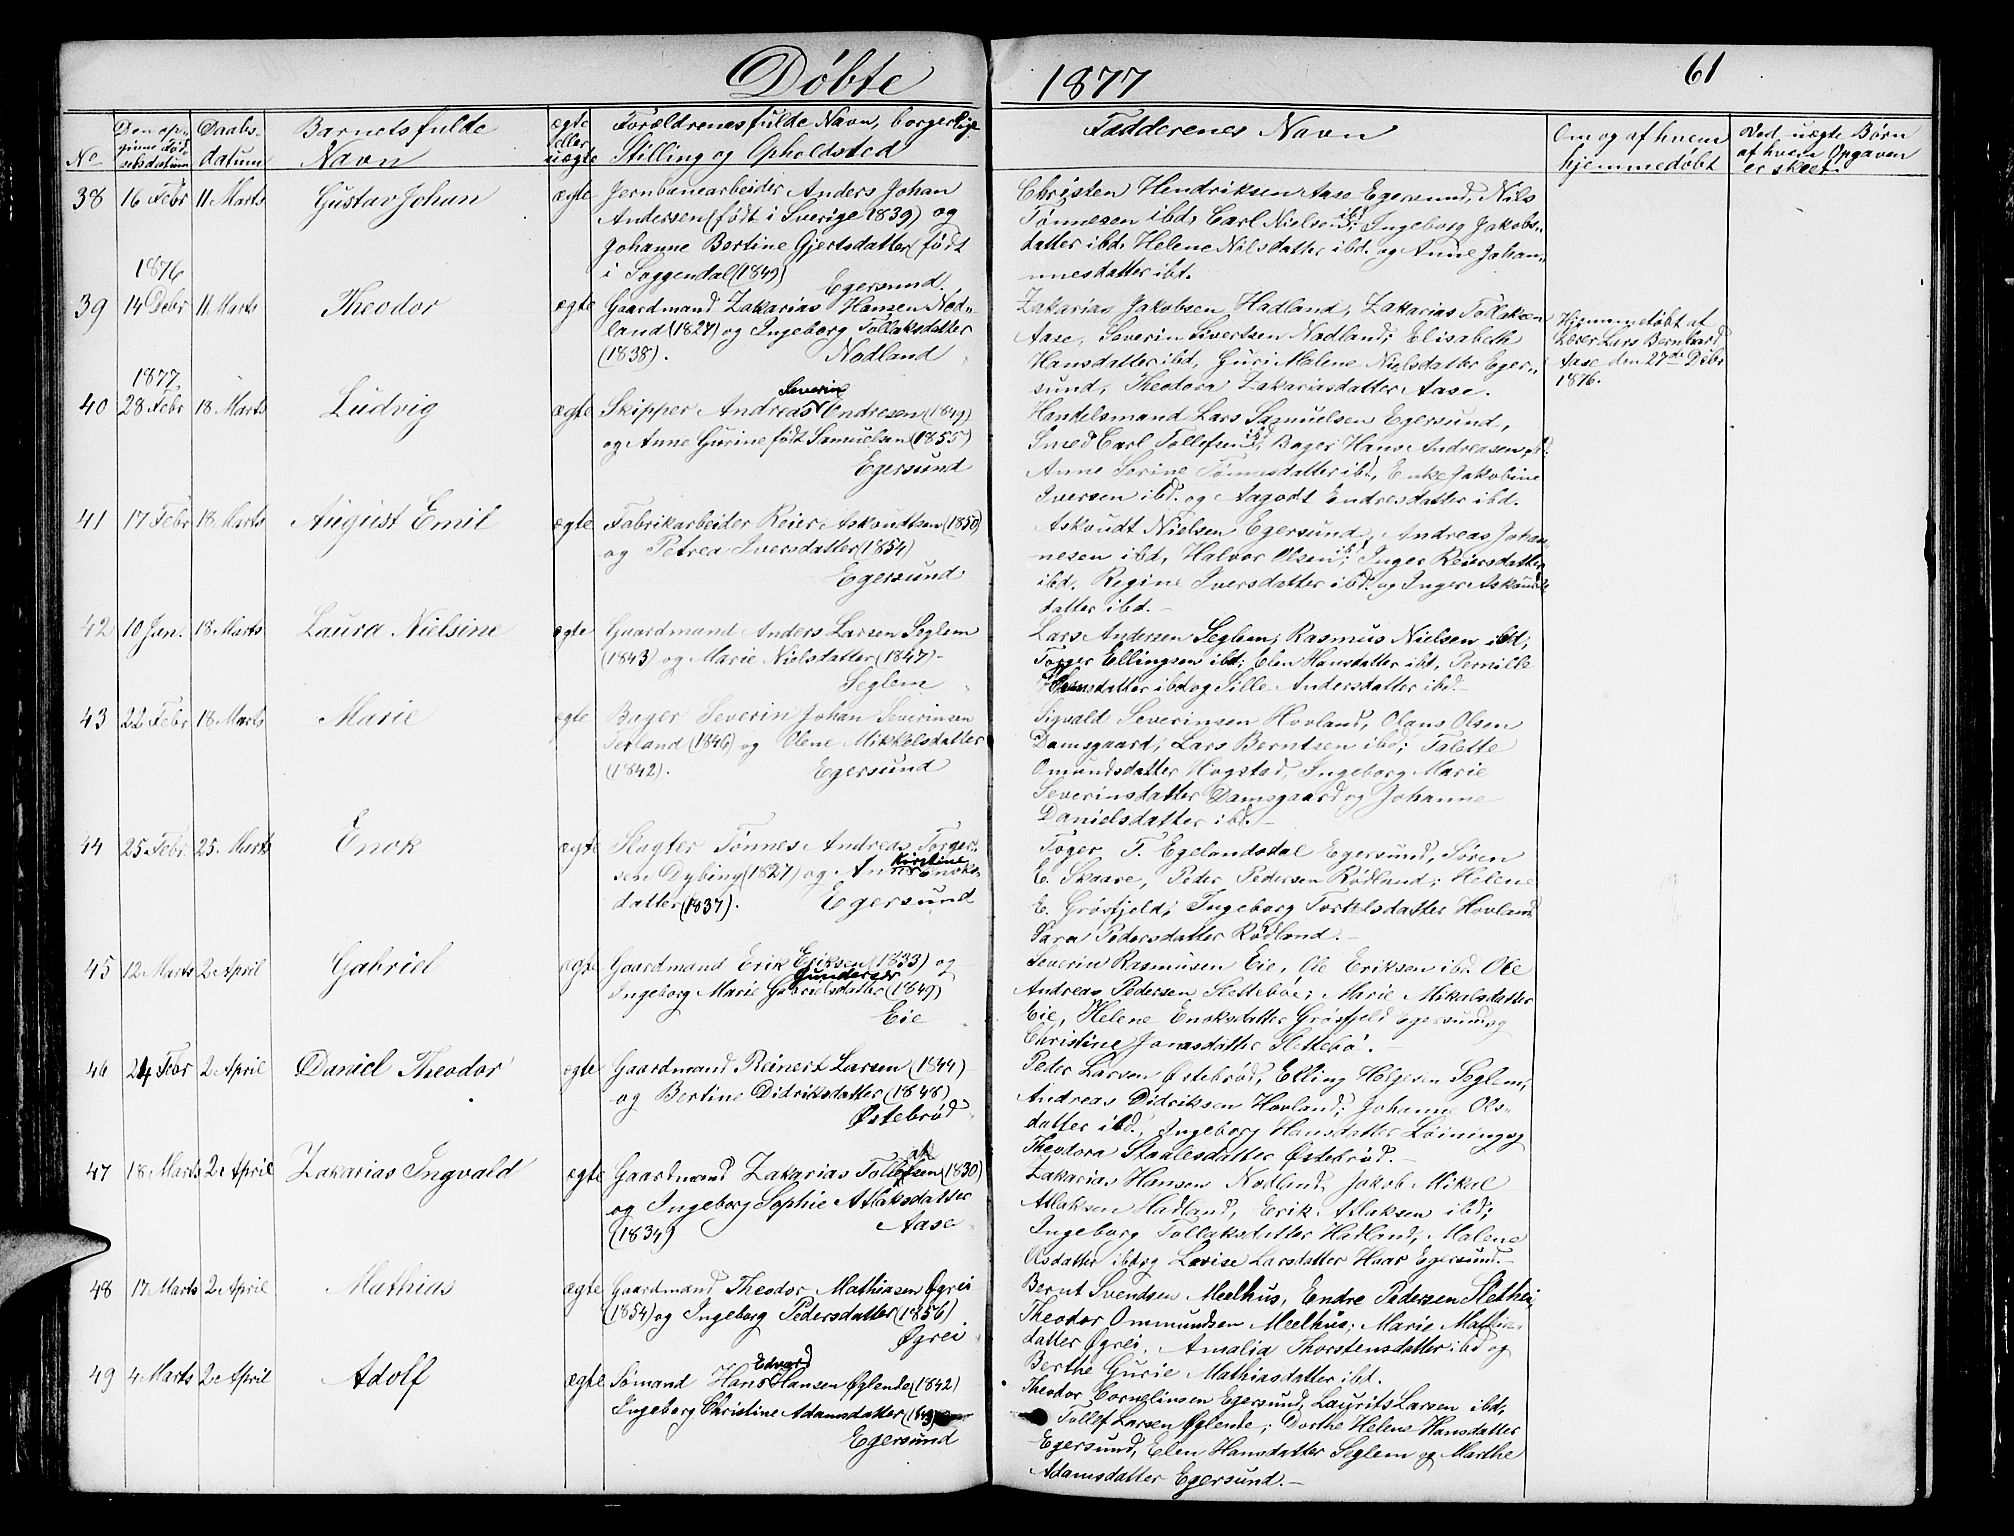 Døbte 1877 61
No
Den op-
givne Fød-
selsdatum
Daabs-
datum
Barnets fulde
Navn
ægte
eller
uægte
Forældrenes fulde Navn, borgerlige
Stilling og Opholdsted
Faddernes Navn
Om og af hvem
hjemmedøbt
Ved uægte Børn
af hvem Opgaven
er skeet.
38 16 Febr 11 Marts Gustav Johan ægte
Jernbanearbeider Anders Johan
Andersen (født i Sverige 1839) og
Johanne Bertine Gjertsdatter (født
i Soggendal (1849)
Egersund.
Christen Hendriksen Aase Egersund, Nils
Tønnesen ibd, Carl Nielsen ibd; Ingeborg Jakobs-
datter ibd, Helene Nilsdatter ibd. og Anne Johan-
nesdatter ibt.
1876
39 14 Debr 11 Marts Theodor ægte
Gaardmand Zakarias Hansen Nød-
land (1827) og Ingeborg Tollaksdatter
(1838). Nodland
Zakarias Jakobsen Hadland, Zakarias Tollaksen
Aase, Severin Sivertsen Nodland; Elisabeth
Hansdatter ibd, Guri Malene Nielsdatter Eger-
sund, Theodora Zakariasdatter Aase.
Hjemmedøbt af
Lærer Lars Bernhard
Aase den 27de Debr
1876.
1877
40 28 Febr 18 Marts Ludvig ægte
Skipper Andreas Severin Endresen (1849)
og Anne Gurine født Samuelsen (1855)
Egersund
Handelsmand Lars Samuelsen Egersund,
Smed Carl Tollefsen ibd, Bager Hans Andreasen ibd.
Anne Serine Tønnesdatter ibd, Enke Jakobine
Iversen ibd. og Aagodt Endresdatter ibd.
41 17 Febr 18 Marts August Emil ægte
Fabrikarbeider Reier Askoudtsen (1850)
og Petrea Iversdatter (1854)
Egersund
Askoudt Nielsen Egersund, Andreas Johan-
nesen ibd, Halvor Olsen ibd; Inger Reiersdatter
ibd. Regine Iversdatter ibd. og Inger Askouds-
datter ibd.-
42 10 Jan. 18 Marts Laura Nielsine ægte
Gaardmand Anders Larsen Seglem
(1843) og Marie Nielsdatter (1847)-
Seglem
Lars Andersen Seglem, Rasmus Nielsen ibd,
Torger Ellingsen ibd; Elen Hansdatter ibt, Pernille
Hansdatter ibd og Sille Andersdatter ibd.-
43 22 Febr 18 Marts Marie ægte
Bager Severin Johan Severinsen
Terland (1846) og Olene Mikkelsdatter
(1842). Egersund
Sigvald Severinsen Hovland, Olaus Olsen
Damsgaard, Lars Berntsen ibd; Talette
Omundsdatter Hogstad, Ingeborg Marie
Severinsdatter Damsgaard og Johanne
Danielsdatter ibd.-
44 25 Febr. 25. Marts Enok ægte
Slagter Tønnes Andreas Torger-
sen Dybing (1827) og Anne Kirstine Enoks-
datter (1837). Egersund
Toger T. Egelandsdal Egersund, Søren
E. Skaare, Peder Pedersen Rødland; Helene
E. Grøsfjeld, Ingeborg Torkelsdatter Hovland
Sara Pedersdatter Rødland.-
45 12 Marts 2 April Gabriel ægte
Gaardmand Erik Eriksen (1833) og
Ingeborg Marie Gabrielsdatter Gundersdr (1849)
Eie
Severin Rasmusen Eie, Ole Eriksen ibd. Ole
Andreas Pedersen Slettebøe; Marie Mikalsdatter
Eie, Helene Enoksdatter Grøsfjeld Egersund og
Christine Jonasdatter Slettebø.-
46 24 Febr 2 April Daniel Theodor ægte
Gaardmand Reinert Larsen (1844)
og Bertine Didriksdatter (1848)
Østebrød
Peder Larsen Østebrød, Elling Holgersen Seglem,
Andreas Didriksen Hovland; Johanne Ols-
datter ibd, Ingeborg Hansdatter Løining og
Theodora Staalesdatter Østebrød.-
47 18 Marts 2 April Zakarias Ingvald ægte
Gaardmand Zakarias Tollefsen (1830)
og Ingeborg Sophie Atlaksdatter
(1834) Aase
Zakarias Hansen Nodland, Jakob Mikal
Atlaksen Hadland, Erik Atlaksen ibd;
Ingeborg Tollaksdatter Hadland, Malene
Olsdatter ibd og Lovise Larsdatter Haar Egersund.-
48 17 Marts 2 April Mathias ægte
Gaardmand Theodor Mathiasen Øgrei
(1854) og Ingeborg Pedersdatter (1856)
Øgrei
Bernt Svendsen Meelhus, Endre Pedersen Slethei,
Theodor Ommundsen Meelhus; Marie Mathias-
datter Øgrei, Amalia Thorstensdatter ibd og
Berthe Gurie Mathiasdatter ibt.
49 4 Marts 2 April Adolf ægte
Sømand Hans Edvard Hansen Øglende (1842)
Ingeborg Christine Adamsdatter
Egersund
Theodor Corneliusen Egersund, Laurits Larsen ibd,
Tollef Larsen Øglende; Dorthe Helene Hansdatter
Egersund, Elen Hansdatter Seglem og Marthe
Adamsdatter Egersund.-